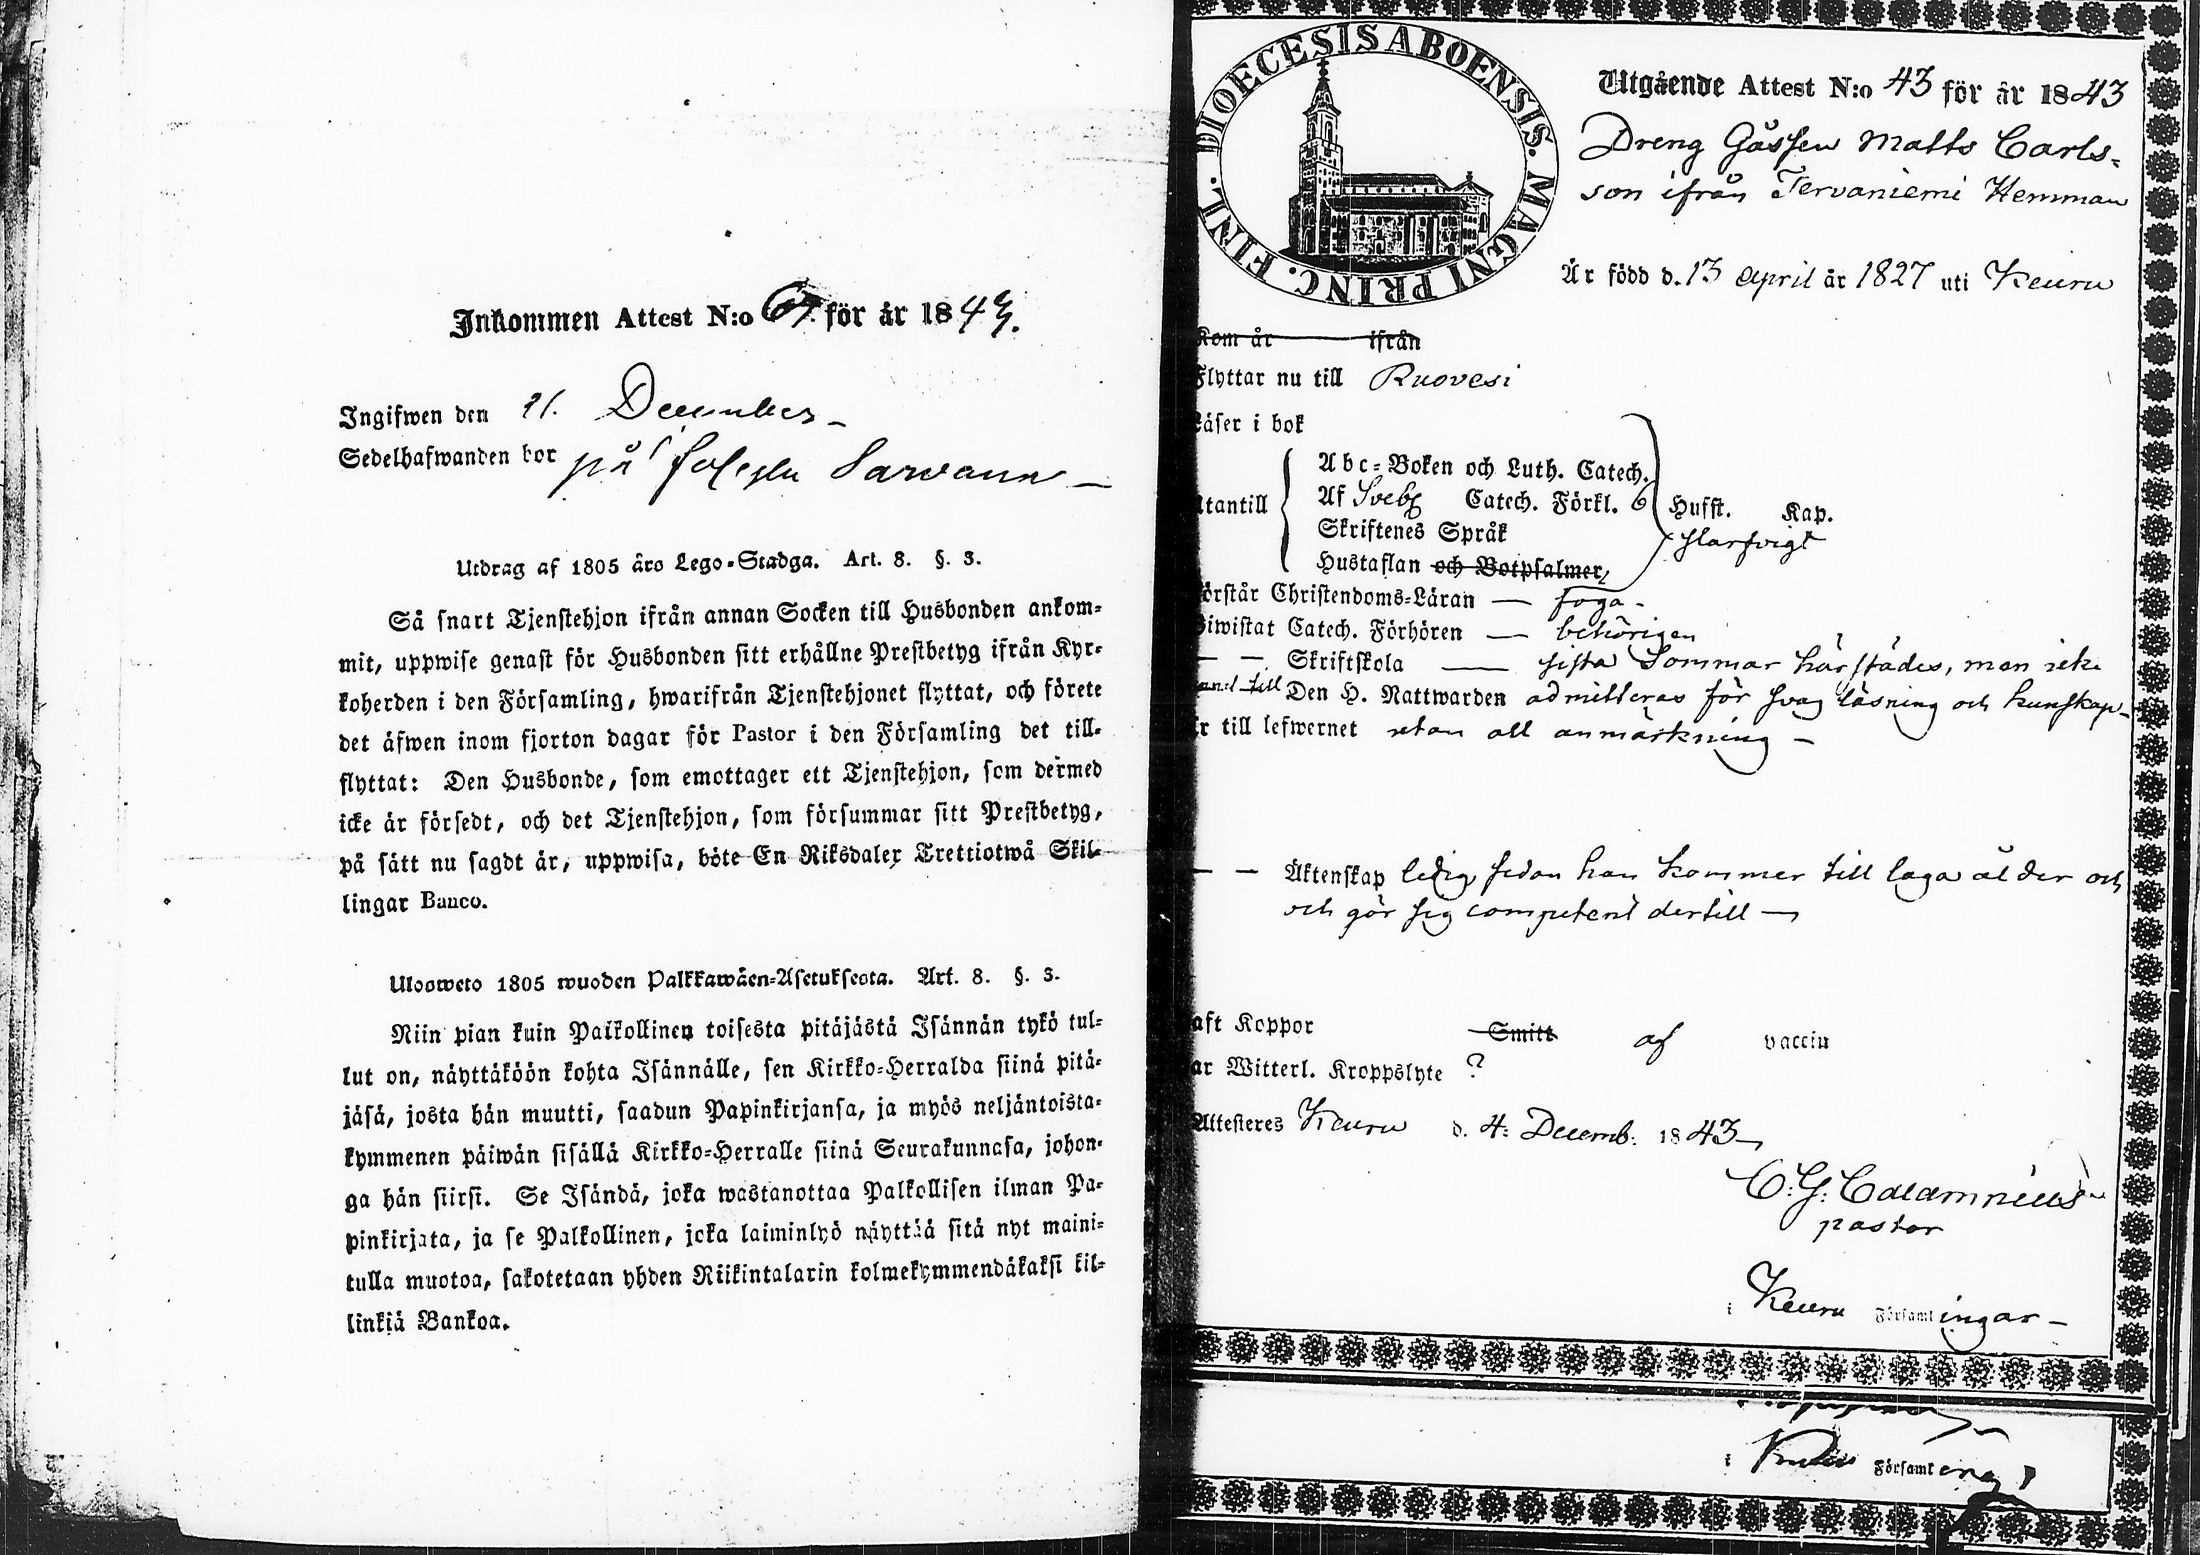 Inkommen Attest N:o 67. för år 1843.
Ingifwen den 21. December
Sedelhafwanden bor på
Utdrag af 1805 års Lego-Stadga. Art. 8. §. 3.
Så snart Tjenstehjon ifrån annan Socken till Husbonden ankom-
mit, uppwise genast för Husbonden sitt erhållne Prestbetyg ifrån Kyr-
koherden i den Församling, hwarifrån Tjenstehjonet flyttat, och förete
det äfwen inom fjorton dagar för Pastor i den Församling det till-
flyttat: Den Husbonde, som emottager ett Tjenstehjon, som dermed
icke är försedt, och det Tjenstehjon, som försummar sitt Prestbetyg,
på sätt nu sagdt är, uppwisa, böte En Riksdaler Trettiotwå Skil-
lingar Banco.
Ulosweto 1805 wuoden Palkkawäen-Asetuksesta. Art. 8. §. 3.
Niin pian kuin Palkollinen toisesta pitäjästä Isännän tykö tul-
lut on, näyttäköön kohta Isännälle, sen Kirkko-Herralda siinä pitä-
jäsä, josta hän muutti, saadun Papinkirjansa, ja myös neljäntoista-
kymmenen päiwän sisällä Kirkko-Herralle siinä Seurakunnasa, johon-
ga hän siirsi. Se Isändä, joka wastanottaa Palkollisen ilman Pa-
pinkirjata, ja se Palkollinen, joka laiminlyö näyttää sitä nyt maini-
tulla muotoa, sakotetaan yhden Riikintalarin kolmekymmendäkaksi kil-
linkiä Bankoa.
DIOECESIS ABOENSIS. MAGNI PRINC. FINL.
Utgående Attest N:o 43 för år 1843
Dreng Gåssen Matts Carls-
son ifrån Tervaniemi Hemman
Är född d. 13 april år 1827 uti Keuru
Kom år ifrån
Flyttar nu till Ruovesi
Läser i bok
Utantill
Abc-Boken och Luth. Catech.
Af Sveb. Catech. Förkl. 6 Hufst. Kap.
Skriftenes Språk slarfvigt
Hustaflan och Botpsalmer
Förstår Christendoms-Läran — foga -
Biwistat Catech. Förhören — behörigen
— — Skriftskola — sista Sommar härstädes, men icke
till Den H. Nattwarden admitteras för svag läsning och kunskap
Är till lefwernet utan all anmärkning —
— — Äktenskap ledig sedan han kommer till laga ålder och
och gör sig competent dertill —
Haft Koppor Smitt af vaccin
Har Witterl. Kroppslyte ?
Attesteres Keuru d. 4. Decemb: 1843
C. G. Calamnius
pastor
i Keuru Församlingar —
i Församl